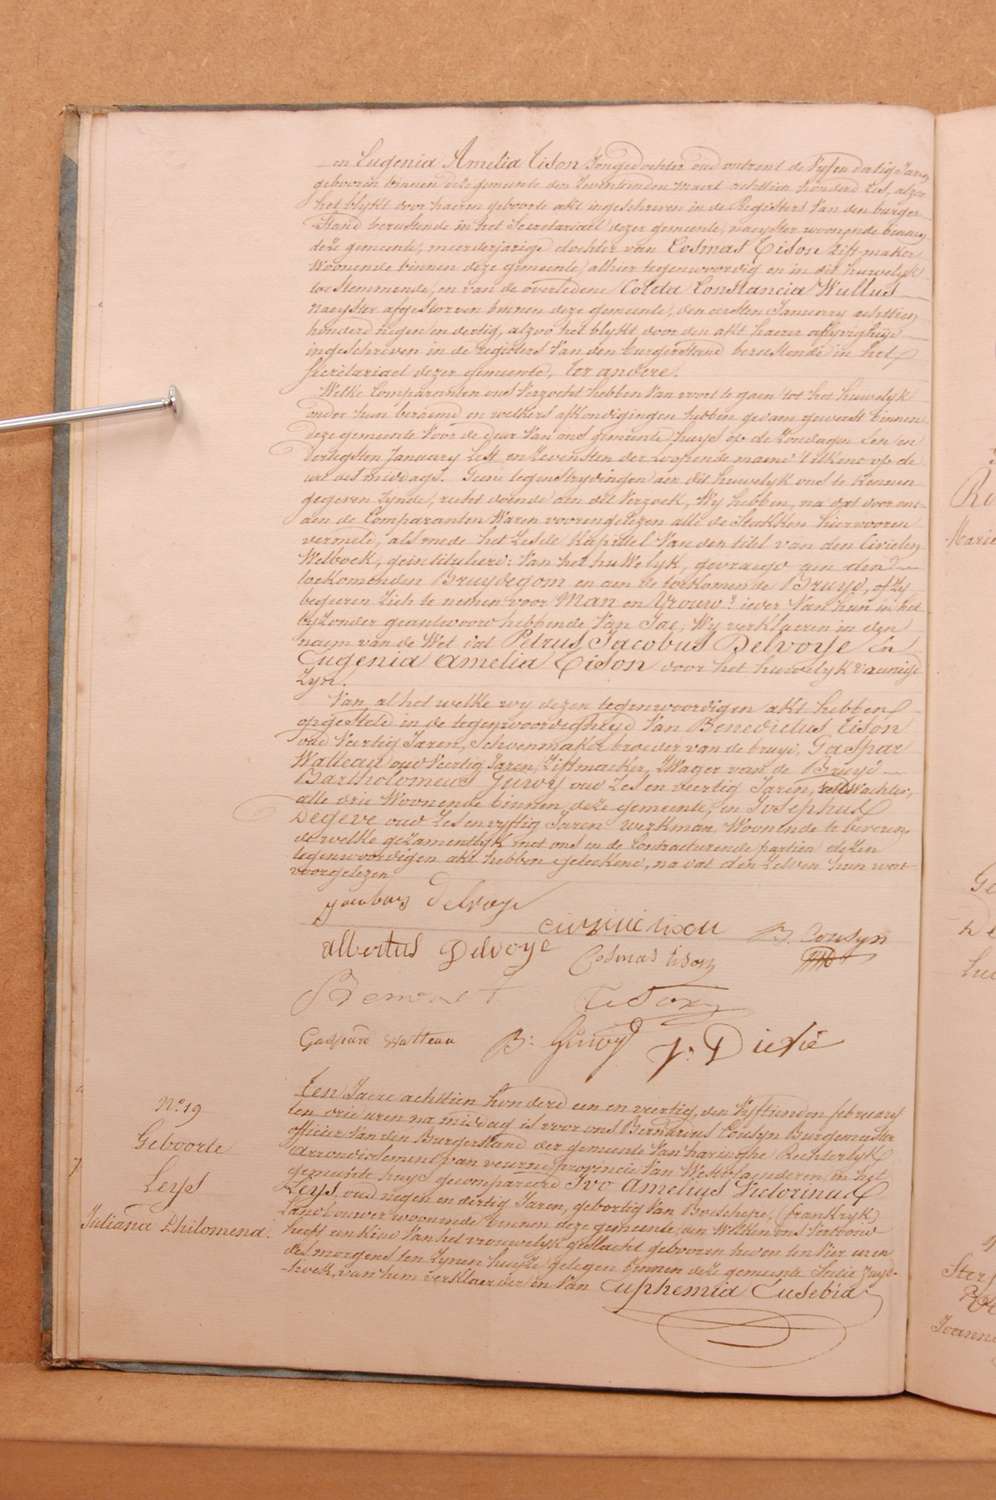 en Eugenia Amelia Tison Jongedochter oud outrent de vyf en dartig Jaren
gebooren binnen deze gemeente den zeventienden maert achttien honderd zes, alzoo
het blykt door haeren geboorte akt ingeschreven in de Registers van den burger
Stand berustende in het Secretariaet dezer gemeente, naeyster woonende binnen
deze gemeente, meerderjarige dochter van Cosmas Tison Ziftmaker
Woonende binnen deze gemeente, alhier tegenwoordig en in dit huwelyk
toestemmende, en van de overledene Coleta Constancia Wullus
naeyster afgestorven binnen deze gemeente, den eersten January achttien
honderd negen en dertig, alzoo het blykt door den akt haerer aflyvigheyd
ingeschreven in de registers van den burgerstand berustende in het
Secretariaet dezer gemeente, ter andere.
Welke Comparanten ons verzocht hebben van voort te gaen tot het huwelyk
onder hun beraemd en welkers afkondigingen hebben gedaen geweest binnen
deze gemeente voor de deur van ons gemeente huys op de Zondagen een en
dertigsten January lest en zevensten der loopende maend telkens op de
ure des middags. Geene tegenstryvingen aen dit huwelyk ons te kennen
gegeven zynde, recht doende aen dit verzoek, Wy hebben, na dat door ons
aen de Comparanten Waren voorengelezen alle de Stukken hiervooren
vermeld, als mede het zesde Kapittel van den titel van den Civielen
Wetboek, geintituleerd: Van het huwelyk, gevraegd aen den
toekomenden Bruydegom en aen de toekomende Bruyd, of zy
begeeren zich te nemen voor Man en Vrouw? ieder van hun in het
byzonder geantwoord hebbende van Jae, Wy verklaeren in den
naem van de Wet dat Petrus Jacobus Delvoye En
Eugenia Amelia Tison door het huwelyk vereenigd
Zyn.
Van al het welke wy dezen tegenwoordigen akt hebben
opgesteld in de tegenwoordigheyd van Benedictus Tison
oud veertig Jaren, Schoenmaker broeder van de bruyd, Gaspar
Watteau oud veertig Jaren, Ziftmaeker, Zwager van de Bruyd
Bartholomeus Guwy oud zes en veertig Jaren, veldwachter,
alle drie Woonende binnen deze gemeente, en Josephus
Degeve oud zes en vyftig Jaren Werkman, Woonende te beveren
de welke gezamentlyk met ons en de Contracteerende partien dezen
tegenwoordigen akt hebben geteekend, na dat den zelven hun was
voorgelezen
jacobus Delvoye
albertus Delvoye
Cosmas tison
B. Cousyn
Tison
Gaspard Watteau
B. Guwy
N.o 19
Geboorte
Leys
Juliana Philomena.
Ten Jaere achttien honderd een en veertig, den vyftienden february
ten drie uren na middag is voor ons Bernardus Cousyn Burgemeester
officier van den Burgerstand der gemeente van haringhe Rechterlyk
arrondissement van veurne provincie van Westvlaenderen, in het
gemeente huys gecompareerd Ivo Amelius Victorinus
Leys, oud negen en dertig Jaren, gebortig van Boeschepe, (frankryk)
Landbouwer woonende binnen deze gemeente, den Welken ons vertoond
heeft een kind van het vrouwelyk geslacht gebooren heden ten vier uren
des morgens, ten zynen huyze gelegen binnen deze gemeente Sectie Zuyd-
hoek, van hem verklaerder en van Euphemia Eusebia